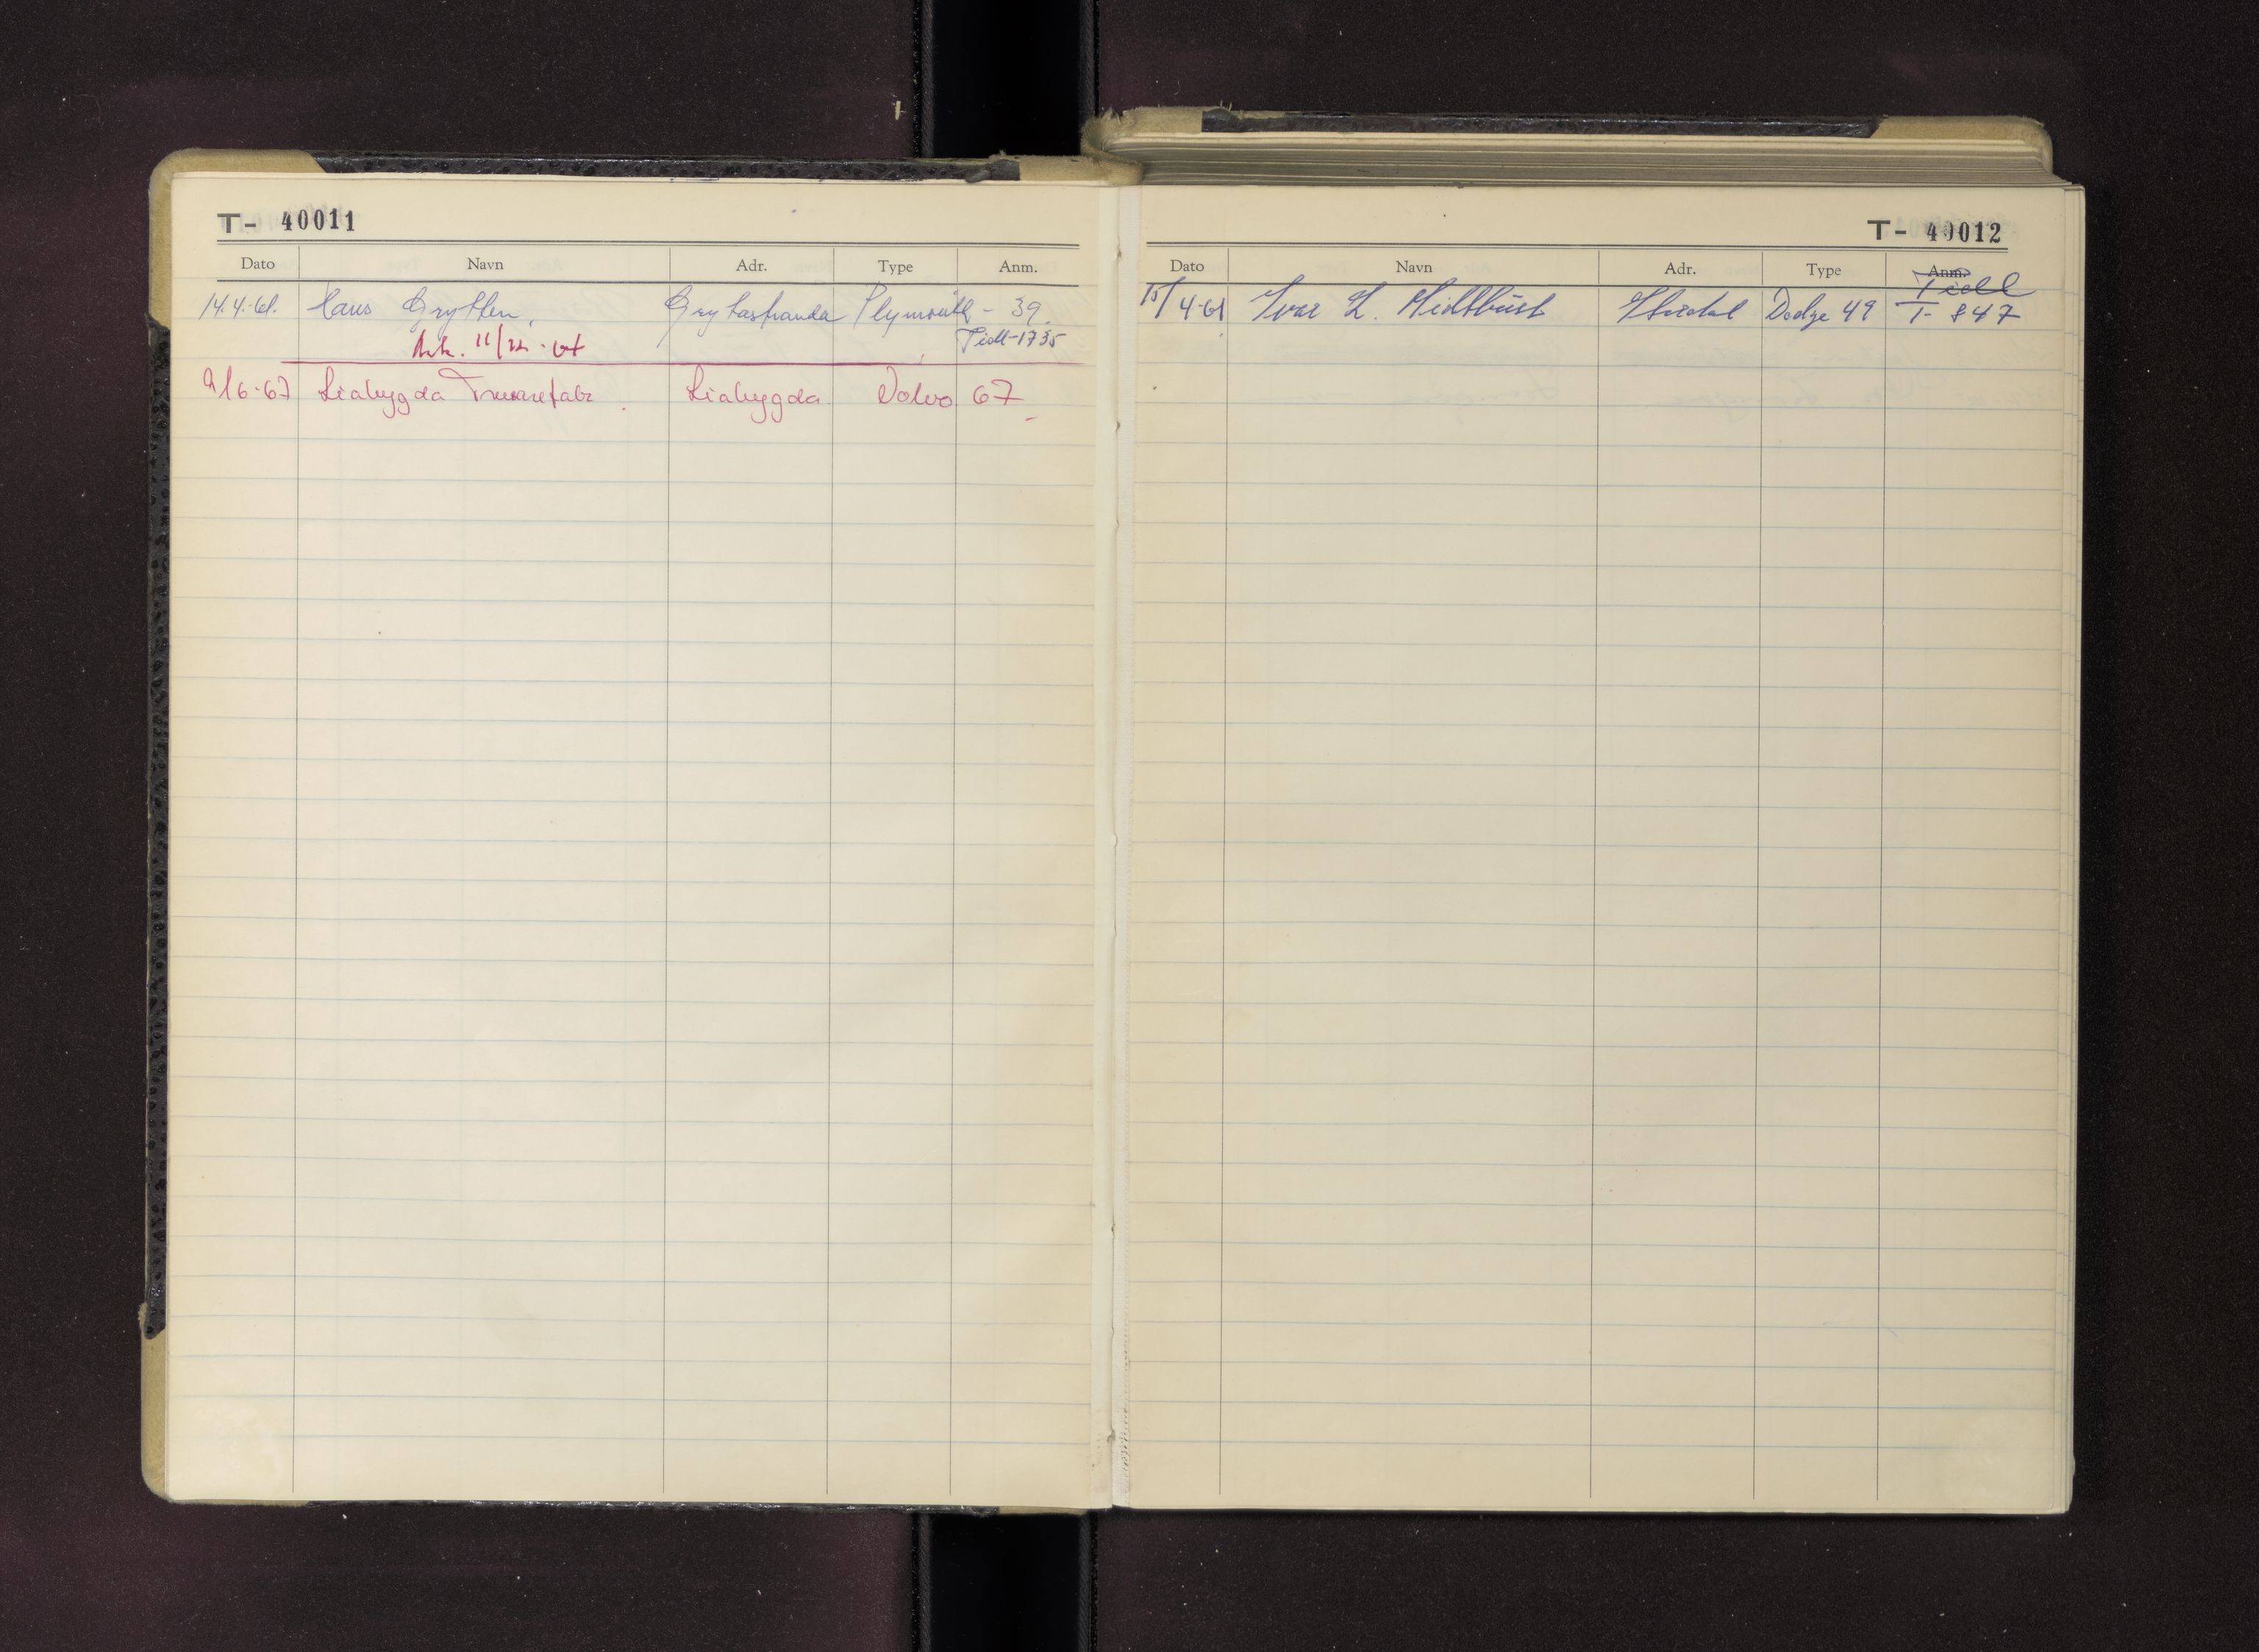 T- 40011
Dato Navn Adr. Type Anm.
14.4.61. Hans Grytten, Grytastranda Plymouth - 39.
Tidl-1735
9/6-67 Liabygda Trevarefabr. Liabygda. Volvo 67
T- 40012
Dato Navn Adr. Type Anm.
Tidl
15/4-61 Ivar L. Midtbust Dodge 49 T- 847